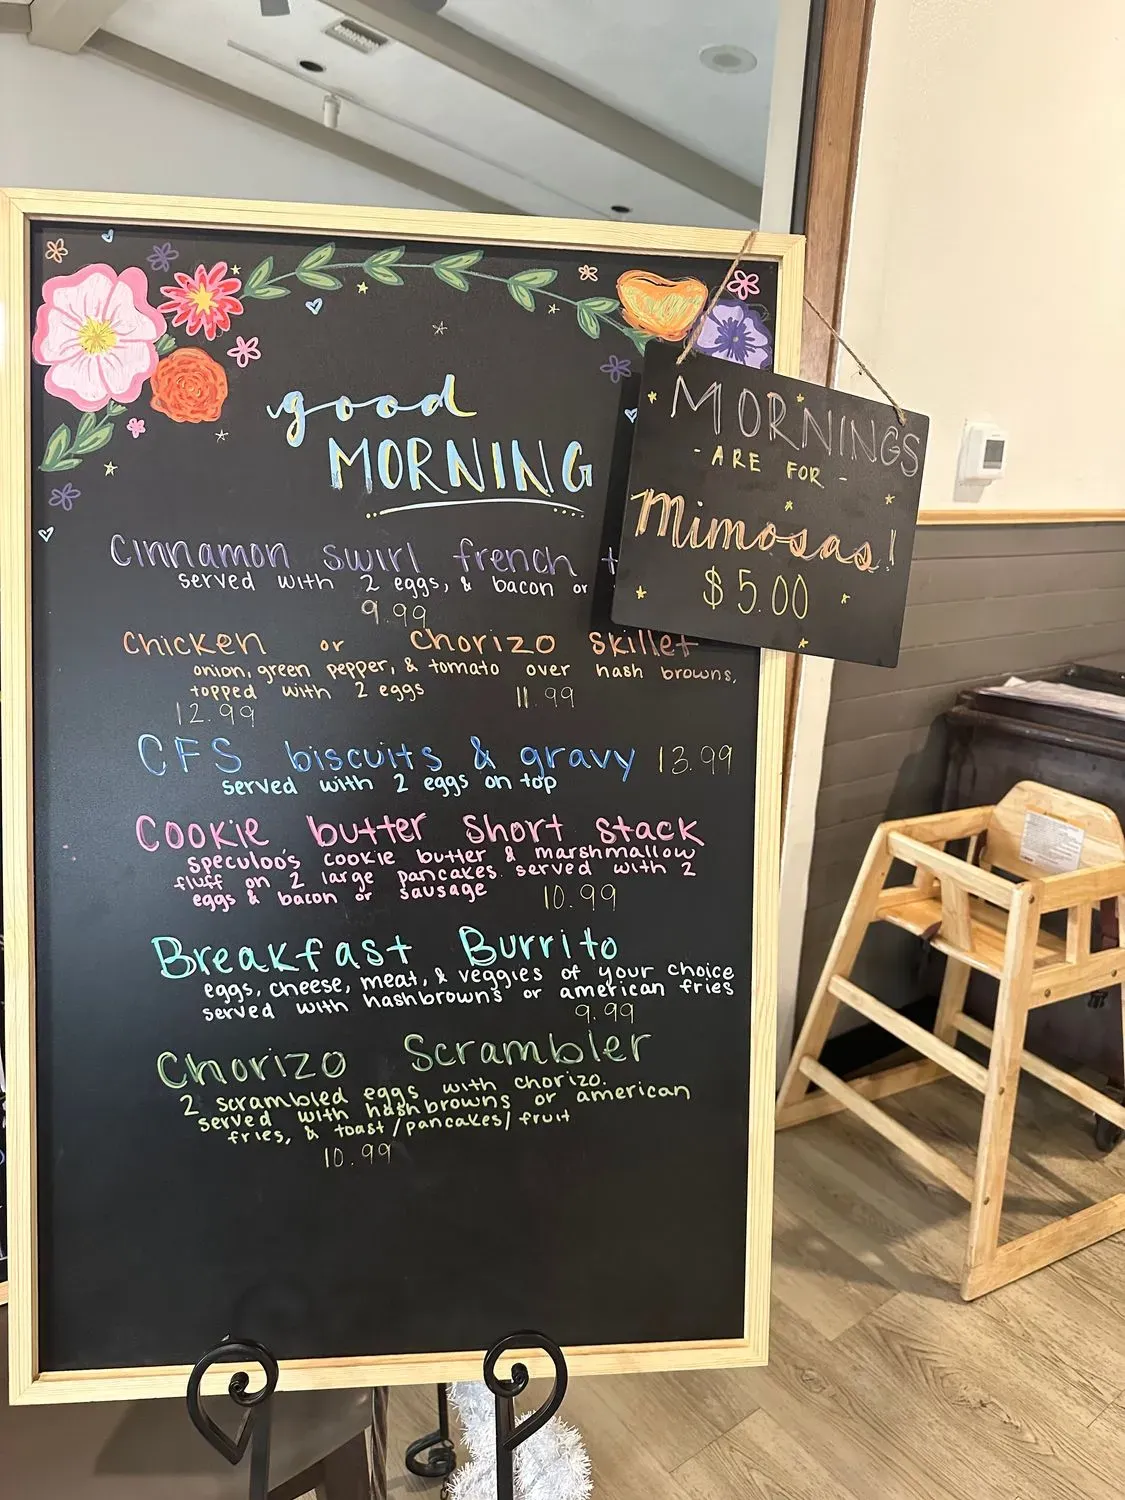 good
MORNING
Cinnamon swirl french
served with 2 eggs, & bacon or
9.99
Chicken or Chorizo Skillet
onion, green pepper, & tomato over hash browns,
topped with 2 eggs 11.99
12.99
CFS biscuits & gravy 13.99
served with 2 eggs on top
Cookie butter Short stack
speculoo's cookie butter & marshmallow
fluff on 2 large pancakes. served with 2
eggs & bacon or sausage 10.99
Breakfast Burrito
eggs, cheese, meat, & veggies of your choice
served with hashbrowns or american fries
9.99
Chorizo Scrambler
2 scrambled eggs with chorizo.
served with hashbrowns or american
fries, & toast/pancakes/fruit
10.99
MORNINGS
- ARE FOR -
Mimosas!
$5.00